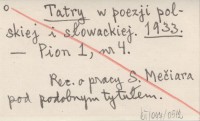 o
Tatry w poezji pol-
skiej i słowackiej. 1933.
— Pion 1, nr 4.
Rec. o pracy S. Mečiara
pod podobnym tytułem.